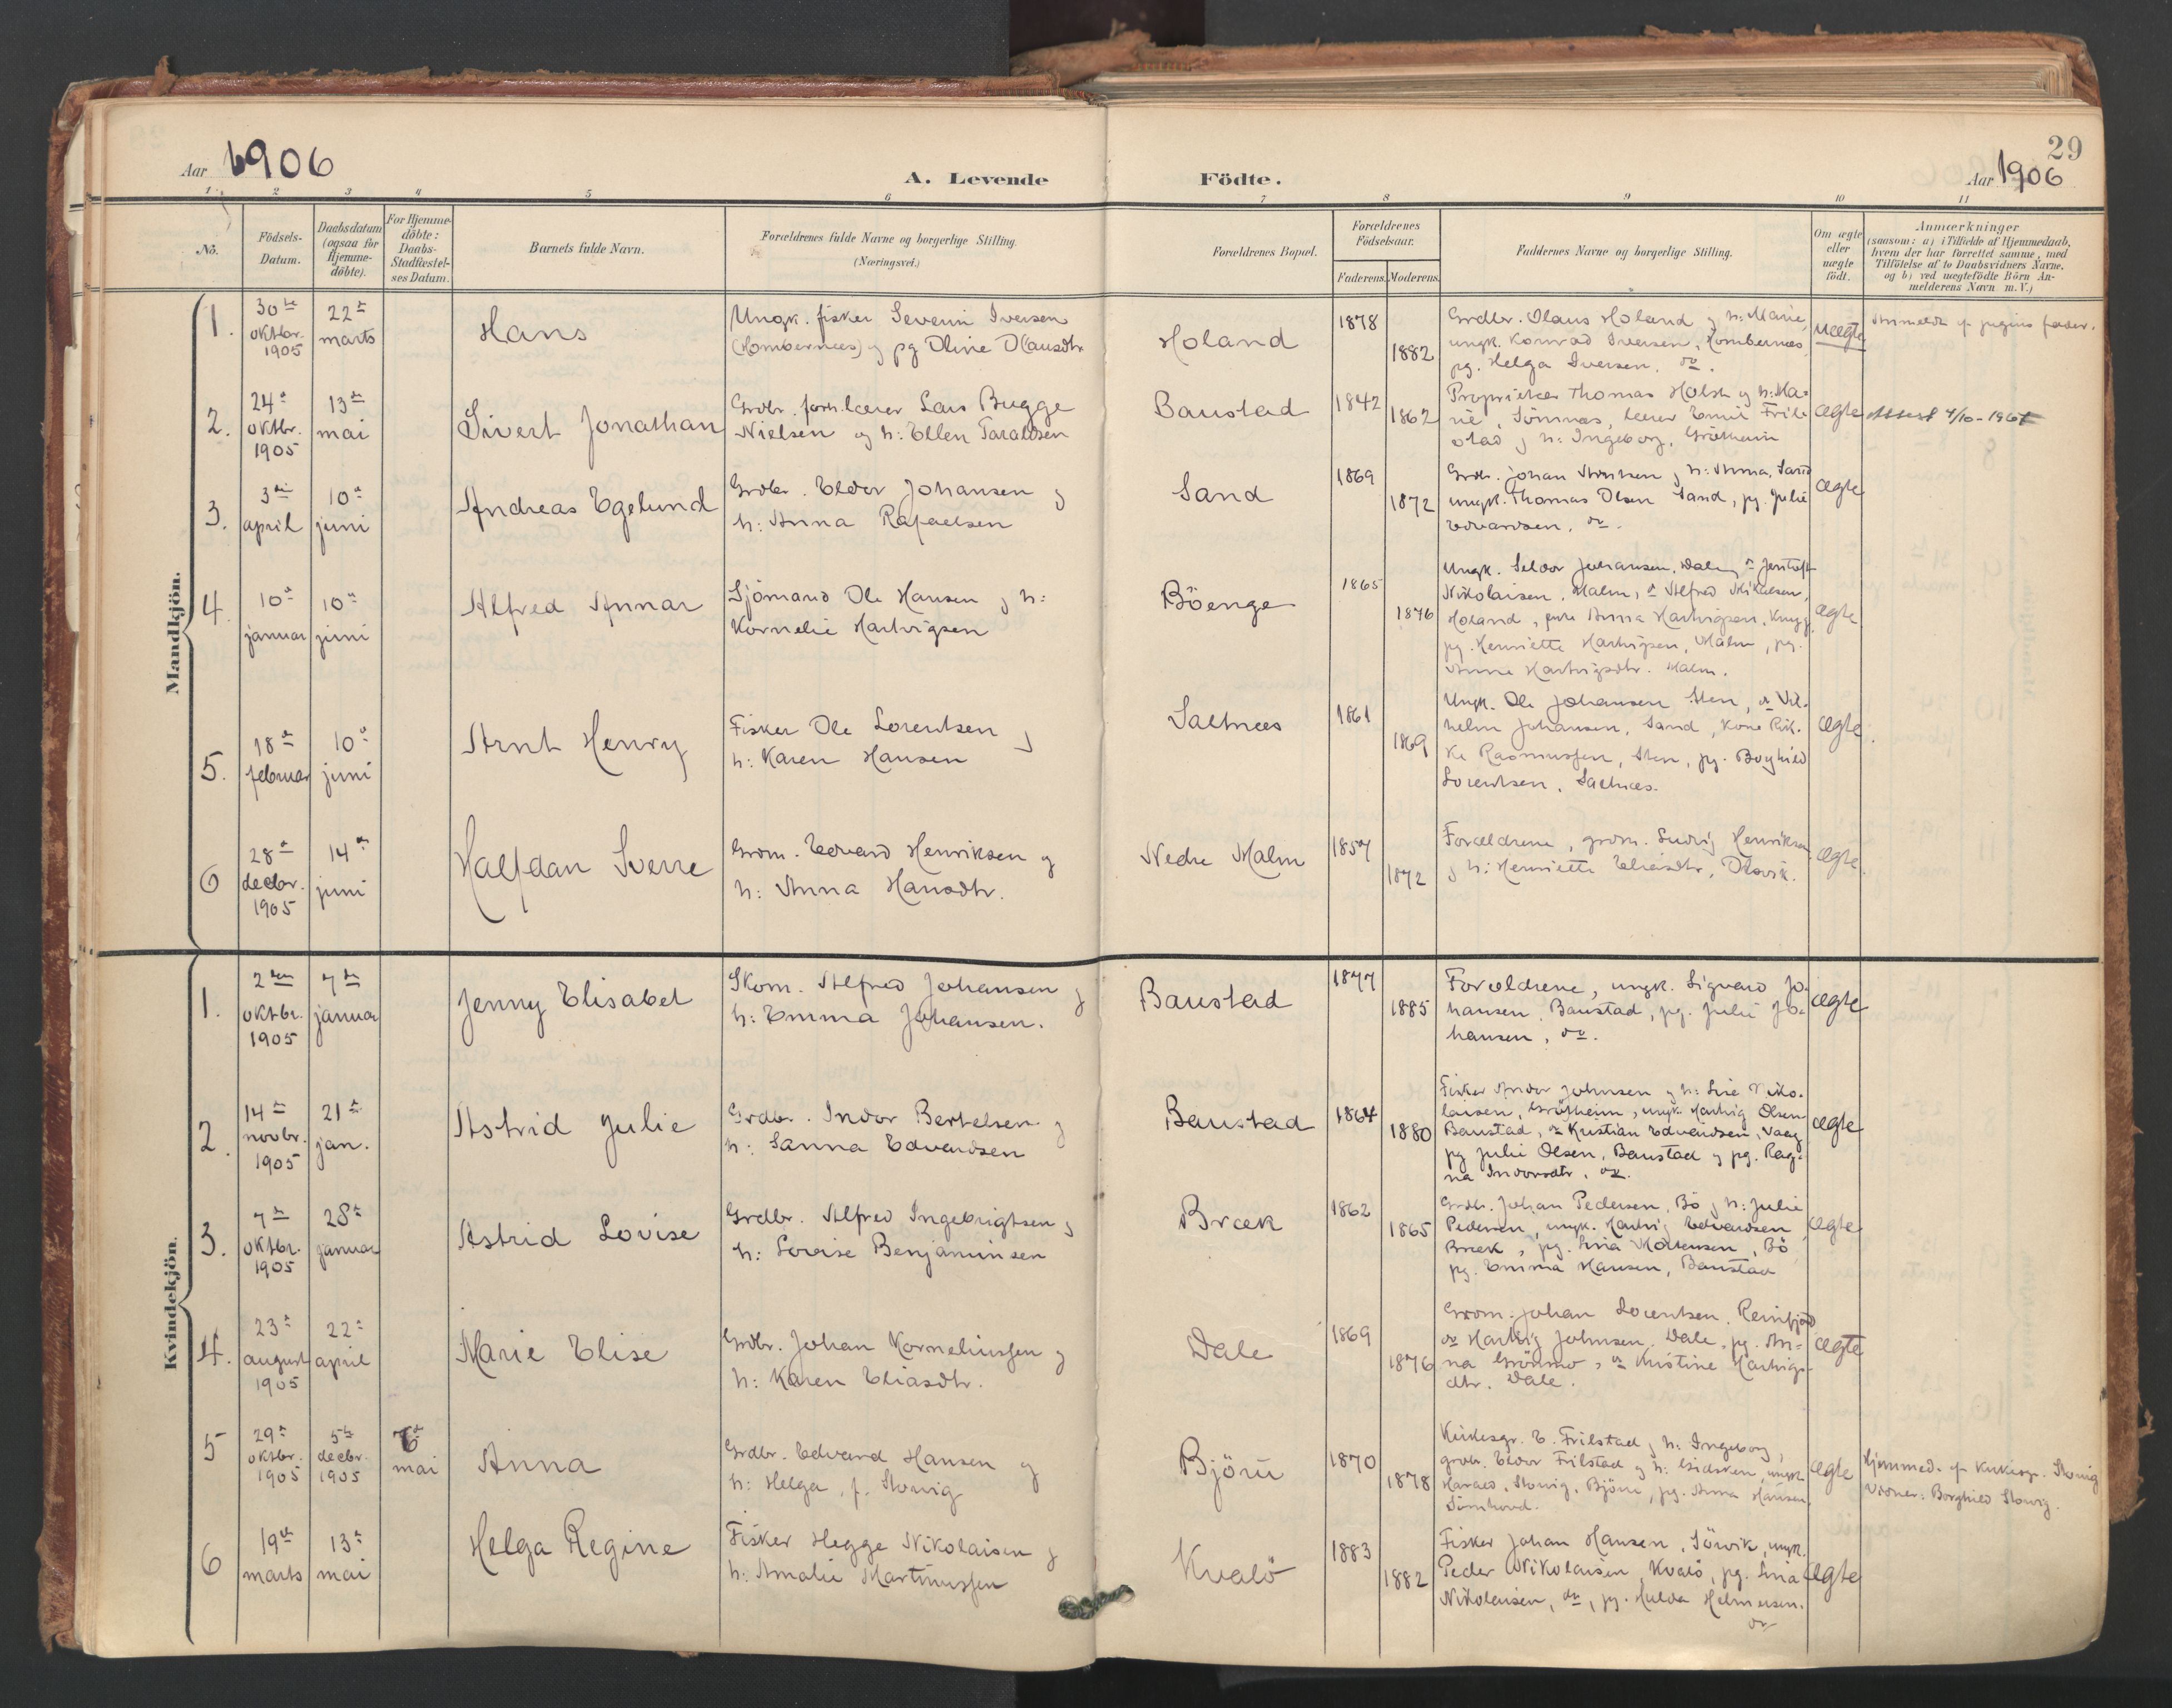 29
Aar 1906
A. Levende Födte.
Aar 1906
1 2 3 4 5 6 7 8 9 10 11
No.
Födsels-Datum.
Daabsdatum (ogsaa for Hjemme-döbte).
For Hjemme-döbte: Daabs-Stadfæstel-ses Datum.
Barnets fulde Navn.
Forældrenes fulde Navne og borgerlige Stilling. (Næringsvei.)
Forældrenes Bopæl.
Forældrenes Födselsaar.
Faderens. Moderens.
Faddernes Navne og borgerlige Stilling.
Om ægte eller uægte födt.
Anmærkninger
(saasom: a) i Tilfælde af Hjemmedaab,
hvem der har forrettet samme, med
Tilföielse af to Daabsvidners Navne.
og b) ved uægtefödte Börn An-
melderens Navn m. V.)
Mandkjön.
1. 30te oktbr. 1905
22de marts
Hans
Ungk. fisker Severin Iversen
(Hombernæs) og pg Oline Olausdtr
Holand
1878
1882
Grdbr. Olaus Holand og h: Marie,
ungk. Konrad Iversen, Hombernæs
pg. Helga Iversen. do.
uægte
Anmeldt af pigens fader.
2. 24de oktbr. 1905
13de mai
Sivert Jonathan
Grdbr. forh. lærer Lars Bugge
Nielsen og h: Ellen Taraldsen
Baustad
1842
1862
Proprietær Thomas Holst og h: Ma-
rie, Sömnæs, lærer Emil Fril-
stad og h: Ingeborg, Grötheim
ægte
Attest 4/10-1967
3. 3die april
10de juni
Andreas Egelund
Grdbr. Eldor Johansen og
h: Anna Rafaelsen
Sand
1869
1872
Grdbr. Johan Arntsen og h: Anna, Sand
ungk. Thomas Olsen Sand, pg. Julie
Edvardsen, do.
ægte
4. 10de januar
10de juni
Alfred Annar
Sjömand Ole Hansen og h:
Kornelie Hartvigsen
Böenge
1865
1876
Ungk. Seldor Johansen, Dale, do Jentoft
Nikolaisen, Malm, do Alfred Mikalsen,
Holand, enke Anna Hartvigsen,
pg. Henriette Hartvigsen, Malm, pg.
Anne Hartvigsdtr. Malm.
ægte
5. 18de februar
10de juni
Arnt Henry
Fisker Ole Lorentsen og
h: Karen Hansen
Saltnæs
1861
1869
Ungk. Ole Johansen Sten, do Vil-
helm Johansen, Sand, kone Rik-
ke Rasmussen, Sten, pg. Borghild
Lorentsen, Saltnæs.
ægte
6 28de decbr. 1905
14de juni
Halfdan Sverre
Grdm. Edvard Henriksen og
h: Anna Hansdtr.
Nedre Malm
1857
1872
Forældrene, grdm. Ludvig Henriksen
og h: Henriette Eliasdtr, Olsvik.
ægte
Kvindekjön.
1. 2den oktbr. 1905
7de januar
Jenny Elisabet
Skom. Alfred Johansen og
h: Emma Johansen.
Baustad
1877
1885
Forældrene, ungk. Sigvard Jo-
hansen, Baustad, pg. Julie Jo-
hansen, do.
ægte
2. 14de novbr. 1905
21de jan.
Astrid Julie
Grdbr. Indor Bertelsen og
h: Sanna Edvardsen
Baustad
1864
1880
Fisker Andor Johnsen og h: Lise Niko-
laisen, Grötheim, ungk. Hartvig Olsen
Baustad, do Kristian Edvardsen, Vaag
pg Julie Olsen, Baustad og pg. Rag-
na Indorsdtr, do.
ægte
3. 7de oktbr. 1905
28de januar
Astrid Lovise
Grdbr. Alfred Ingebrigtsen og
h: Lovise Benjaminsen
Bræk
1862
1865
Grdbr. Johan Pedersen, Bö og h: Julie
Pedersen, ungk. Hartvig Edvardsen
Bræk, pg. Lina Mortensen, Bö
pg. Emma Hansen, Baustad
ægte
4. 23de august 1905
22de april
Marie Elise
Grdbr. Johan Korneliussen og
h: Karen Eliasdtr.
Dale
1869
1876
Grdm. Johan Lorentsen, Reinfjord
do Hartvig Johnsen, Dale, pg. An-
na Grönmo, do Kristine Hartvigs-
dtr. Dale.
ægte
5 29de oktbr. 1905
5te decbr. 1905
6te mai
Anna
Grdbr. Edvard Hansen og
h: Helga, f. Slovig
Björu
1870
1878
Kirkesgr. E. Frilstad og h: Ingeborg,
grdbr. Eldor Frilstad og h: Gidsken, ungk.
Harald Slovig, Björu, pg. Anna Hansen,
Sörnhoved.
ægte
Hjemmed. af kirkesgr. Slovig
Vidner: Borghild Slovig.
6 19de marts
13de mai
Helga Regine
Fisker Hegge Nikolaisen og
h: Amalie Martinussen
Kvalö
1883
1882
Fisker Johan Hansen, Sörvik, ungk.
Peder Nikolaisen, Kvalö, pg. Lina
Nikolaisen, do, pg. Hulda Helmersen.
do
ægte